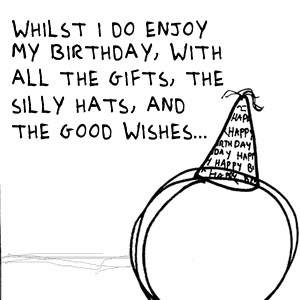 WHILST I DO ENJOY
MY BIRTHDAY, WITH
ALL THE GIFTS, THE
SILLY HATS, AND
THE GOOD WISHES...
HAPP
HAPPY
RTHDAY
DAY HAPP
Y HAPPY B
HAPPY B